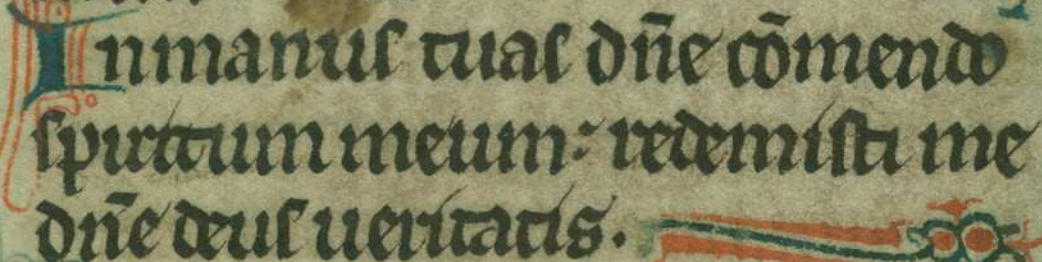 In manus tuas dn̄e cōmendo
spiritum meum: redemisti me
dn̄e deus ueritatis.